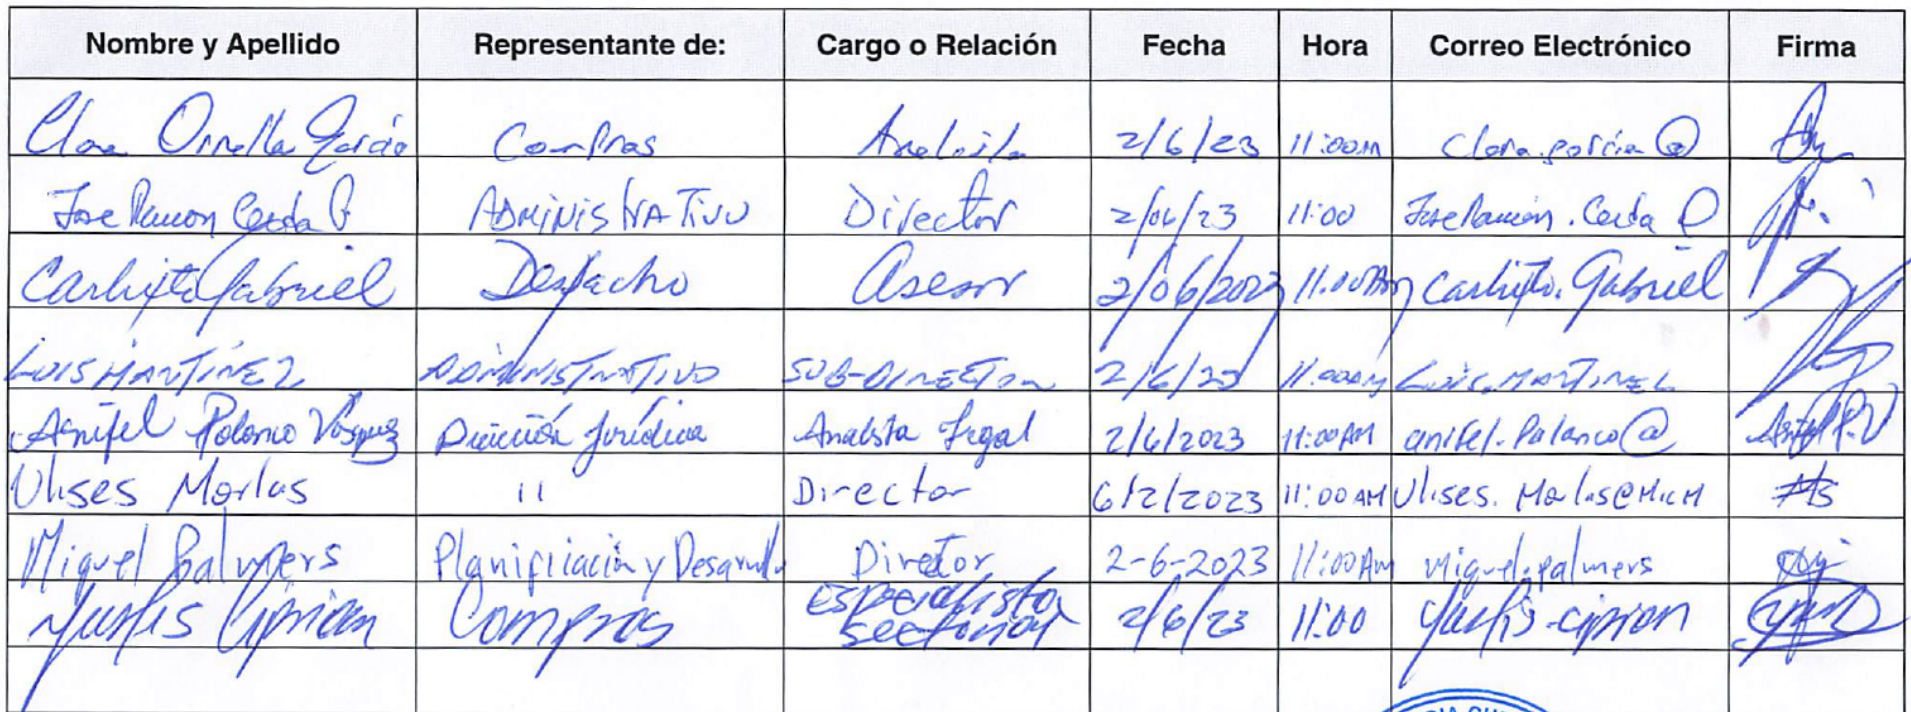 Nombre y Apellido Representante de: Cargo o Relación Fecha Hora Correo Electrónico Firma
Clara Ornella García Compras Analista 2/6/23 11:00AM Clara.garcia@
Jose Ramon Cerda P. ADMINISTRATIVO Director 2/06/23 11:00 JoseRamon.Cerda
Carlixta Gabriel Despacho Asesor 2/06/2023 11:00AM Carlixta.Gabriel
LUIS MARTÍNEZ ADMINISTRATIVO SUB-DIRECTOR 2/6/23 11:00AM LUIS.MARTINEZ
Anifel Polanco Vásquez Dirección Jurídica Analista Legal 2/6/2023 11:00AM anifel.Polanco@
Ulises Morlas 11 Director 6/2/2023 11:00 AM Ulises.Morlas@MICM
Miguel Palmers Planificiación y Desarrollo Director 2-6-2023 11:00AM miguel.palmers
Yurfis Ciprian Compras especialista sectorial 2/6/23 11:00 Yurfis.ciprian